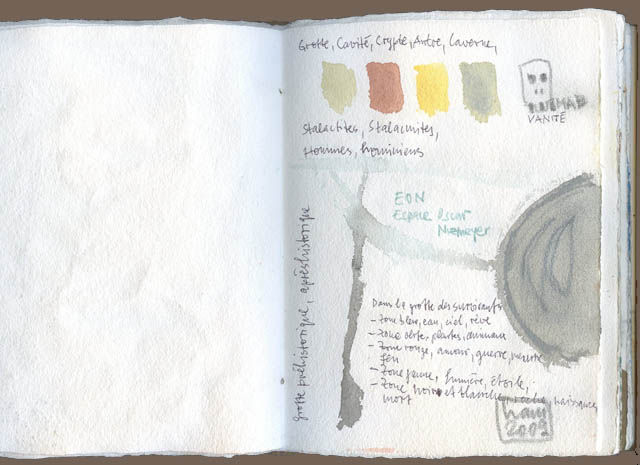 Grotte, Cavité, Crypte, Antre, Caverne,
VANITÉ
Stalactites, Stalagmites,
Hommes, hominiens
EON
Espace Oscar
Niemeyer
grotte préhistorique, aprèshistorique
Dans la grotte des survivants
- Zone bleu, eau, ciel, rêve
- Zone verte, plantes, animaux
- Zone rouge, amour, guerre,
feu
- Zone jaune, lumière, étoile,
- Zone noire et blanche, roche, naissance,
mort
2009